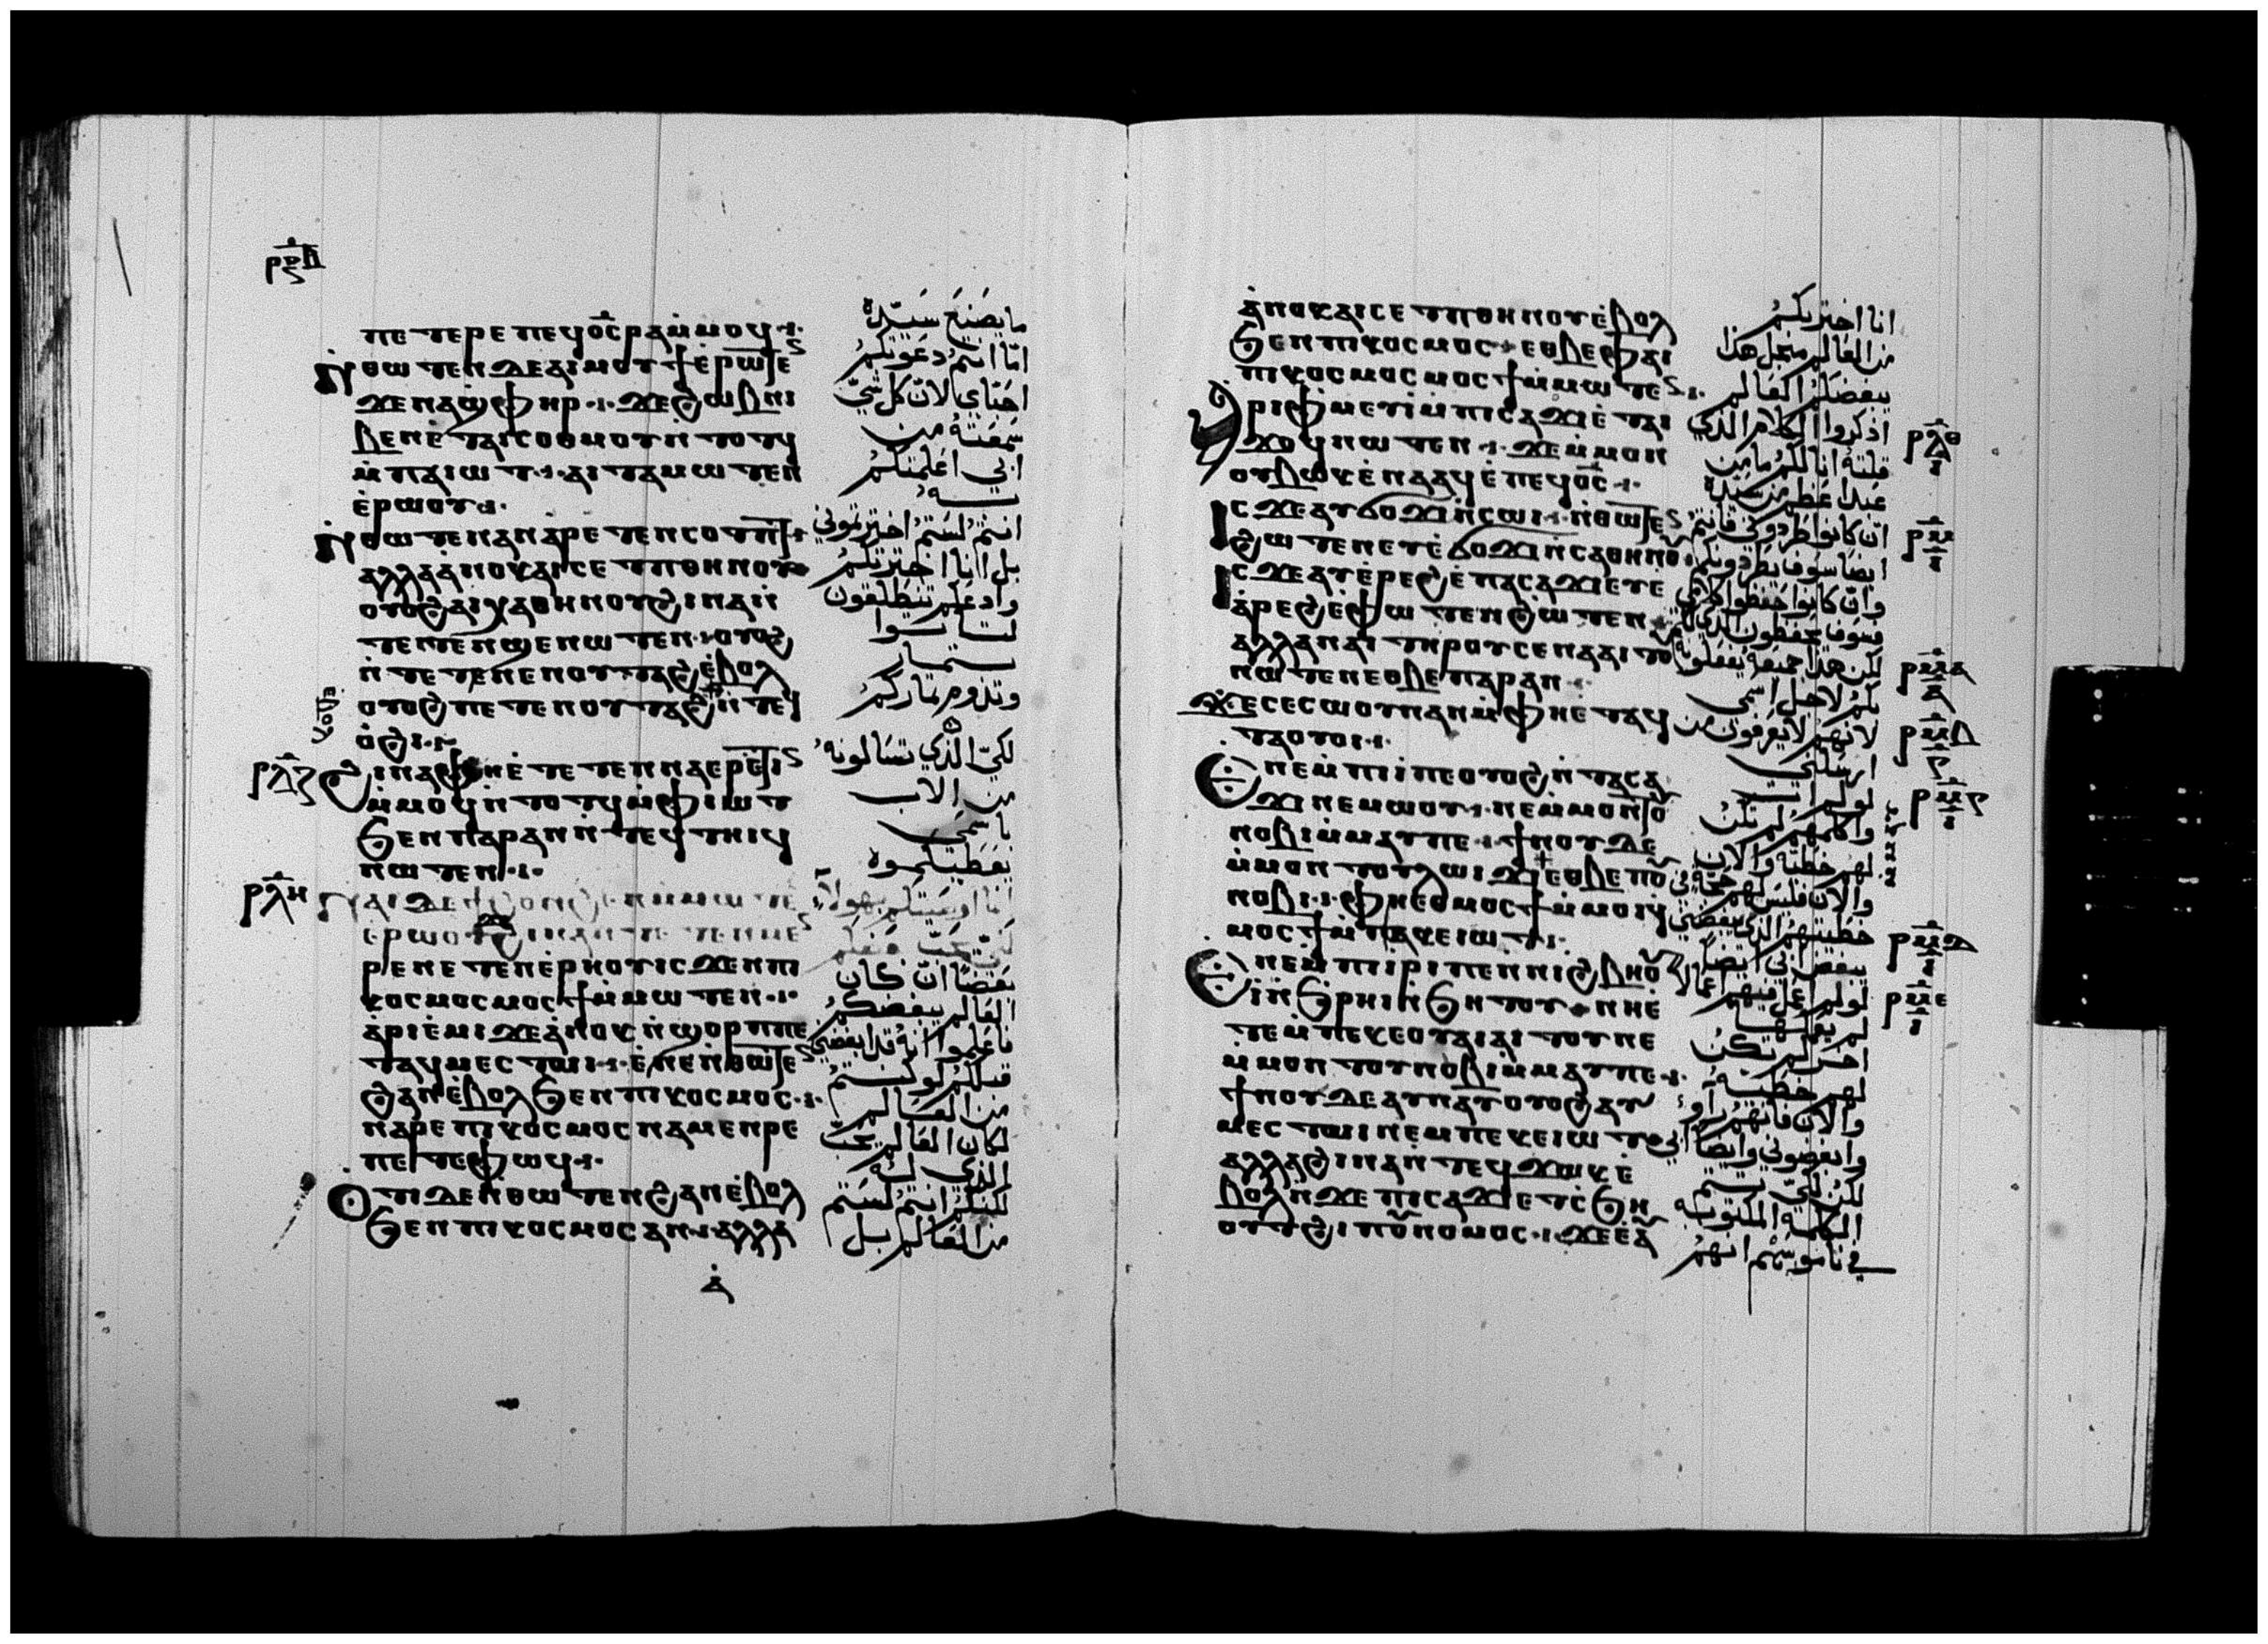 ⲣⲝⲃ
ⲡⲉⲧⲉⲣⲉⲡⲉϥⲟ̅ⲥ̅ⲣⲁⲙ̀ⲙⲟϥ
ⲛ̀ⲑⲱⲧⲉⲛⲇⲉⲁⲓⲙⲟⲩϯⲉ̀ⲣⲱⲧⲉ
ϫⲉⲛⲁϣ̀ⲫⲏⲣ ϫⲉϩⲱⲃⲛⲓ
ⲃⲉⲛⲉ̀ⲧⲁⲓⲥⲟⲑⲙⲟⲩⲛ̀ⲧⲟⲧϥ
ⲙ̀ⲡⲁⲓⲱⲧ ⲁⲓⲧⲁⲙⲱⲧⲉⲛ
ⲉ̀ⲣⲱⲟⲩ
ⲛ̀ⲑⲱⲧⲉⲛⲁⲛⲁⲣⲉⲧⲉⲛⲥⲟⲧⲡⲧ
ⲁⲗⲗⲁⲁ̀ⲛⲟⲕⲁⲓⲥⲉⲧⲡⲑⲏⲛⲟⲩ
ⲟⲩⲟϩⲁⲓⲭⲁⲑⲏⲛⲟⲩϩⲓⲛⲁⲛ̀
ⲧⲉⲧⲉⲛϣⲉⲛⲱⲧⲉⲛ ⲟⲩⲟϩ
ⲛ̀ⲧⲉⲧⲉⲛⲉⲛⲟⲩⲧⲁϩⲉ̀ⲃⲟⲗ
ⲟⲩⲟϩⲡⲉⲧⲉⲛⲟⲩⲧⲁϩⲛ̀ⲧⲉϥ
ⲟ̀ϩⲓ
ⲣⲗⲍ
ϩⲓⲛⲁⲫⲏⲉ̀ⲧⲉⲧⲉⲛⲛⲁⲉⲣⲉⲧⲓ
ⲙ̀ⲙⲟϥⲛ̀ⲧⲟⲧϥⲙ̀ⲫⲓⲱⲧ
ϧⲉⲛⲡⲁⲣⲁⲛⲛ̀ⲧⲉϥⲧⲏⲓϥ
ⲛⲱⲧⲉⲛ
ⲣⲗⲏ
ⲛⲁⲓⲇⲉϯϩⲟⲛϩⲉⲛⲙ̀ⲙⲱⲧⲉ
ⲉⲣⲱⲟⲩϩⲓⲛⲁⲛⲧⲉⲧⲉⲛⲙⲉ
ⲣⲉⲛⲉⲧⲉⲛⲉ̀ⲣⲏⲟⲩⲓⲥϫⲉⲡⲓ
ⲕⲟⲥⲙⲟⲥⲙⲟⲥϯⲙ̀ⲙⲱⲧⲉⲛ
ⲁ̀ⲣⲓⲉ̀ⲙⲓϫⲉⲁ̀ⲛⲟⲕⲛ̀ϣⲟⲣⲡⲡⲉ
ⲧⲁϥⲙⲉⲥⲧⲱⲓ ⲉ̀ⲛⲉⲛ̀ⲑⲱⲧⲉ
ϩⲁⲛⲉ̀ⲃⲟⲗϧⲉⲛⲡⲓⲕⲟⲥⲙⲟⲥ
ⲛⲁⲣⲉⲡⲓⲕⲟⲥⲙⲟⲥⲛⲁⲙⲉⲛⲣⲉ
ⲡⲉⲧⲉⲫⲱϥ
ⲟⲧⲓⲇⲉⲛ̀ⲑⲱⲧⲉⲛϩⲁⲛⲉ̀ⲃⲟⲗ
ϧⲉⲛⲡⲓⲕⲟⲥⲙⲟⲥⲁⲛ ⲁⲗⲗⲁ
ⲁ̀
ما يصنع سيّده
امّا انتم دعوتكم
احبّاي لانّ كل شيّ
سمعته من
ابي اعلمتكم
به
انتم لستم اخترتموني
بل انا اخترتكم
وادعكم تنطلقون
لتاتوا
بثمار
وتدوم ثماركم
لكيّ الذي تسالونه
من الاب
باسمي
يعطيكموه
بعضا انّ كان
العالم يبغضكم
فاعلموا انه قد ابغضني
قبلكم لو كنتم
من العالم
لكان العالم يحبّ
الذي له
لكنكم انتم لستم
من العالم بل
ⲁ̀ⲛⲟⲕⲁⲓⲥⲉⲧⲡⲑⲏⲛⲟⲩⲉ̀ⲃⲟⲗ
ϧⲉⲛⲡⲓⲕⲟⲥⲙⲟⲥ ⲉⲑⲃⲉⲫⲁⲓ
ⲡⲓⲕⲟⲥⲙⲟⲥⲙⲟⲥϯⲙ̀ⲙⲱⲧⲉ
ⲁⲣⲓⲫ̀ⲙⲉⲩⲓ̀ⲙ̀ⲡⲓⲥⲁϫⲓⲉ̀ⲧⲁⲓ
ϫⲟϥⲛⲱⲧⲉⲛ ϫⲉⲙ̀ⲙⲟⲛ
ⲟⲩⲃⲱⲕⲉ̀ⲛⲁⲁϥⲉ̀ⲡⲉϥⲟ̅ⲥ̅
ⲓⲥϫⲉⲁⲩϭⲟϫⲓⲛ̀ⲥⲱⲓ ⲛ̀ⲑⲱⲧⲉ
ϩⲱⲧⲉⲛⲉⲩⲉ̀ϭⲟϫⲓⲛ̀ⲥⲁⲑⲏⲛⲟ
ⲓⲥϫⲉⲁⲩⲉ̀ⲣⲉϩⲉ̀ⲡⲁⲥⲁϫⲓⲉⲩⲉ
ⲁ̀ⲣⲉϩⲉ̀ⲫⲱⲧⲉⲛϩⲱⲧⲉⲛ
ⲁⲗⲗⲁⲛⲁⲓⲧⲏⲣⲟⲩⲥⲉⲛⲁⲁⲓⲧⲟ
ⲛⲱⲧⲉⲛⲉⲑⲃⲉⲡⲁⲣⲁⲛ
ϫⲉⲥⲉⲥⲱⲟⲩⲛⲁⲛⲙ̀ⲫⲏⲉⲧⲁϥ
ⲧⲁⲟⲩⲟⲓ
ⲉⲛⲉⲙ̀ⲡⲓⲓ̀ⲡⲉⲟⲩⲟϩⲛ̀ⲧⲁⲥⲁ
ϫⲓⲛⲉⲙⲱⲟⲩ ⲛⲉⲙ̀ⲙⲟⲛⲧⲟ
ⲛⲟⲃⲓⲙ̀ⲙⲁⲩⲡⲉ ϯⲛⲟⲩⲇⲉ
ⲙ̀ⲙⲟⲛⲧⲟⲩⲗⲱⲓϫⲓⲉⲑⲃⲉⲡⲟ
ⲛⲟⲃⲓ ⲫⲏⲉⲑⲙⲟⲥϯⲙ̀ⲙⲟⲓϥ
ⲙⲟⲥϯⲙ̀ⲡⲁⲕⲉⲓⲱⲧ
ⲉⲛⲉⲙ̀ⲡⲓⲓ̀ⲣⲓⲡⲉⲛ̀ⲛⲓϩⲃⲏⲟ
ⲓⲛ̀ϧⲣⲏⲓⲛ̀ϧⲏⲧⲟⲩ ⲛⲏⲉ
ⲧⲉⲙ̀ⲡⲉⲕⲉⲟⲩⲁⲓⲁⲓⲧⲟⲩⲡⲉ
ⲙ̀ⲙⲟⲛⲧⲟⲩⲛⲟⲃⲓⲙ̀ⲙⲁⲩⲡⲉ
ϯⲛⲟⲩⲇⲉⲁⲩⲛⲁⲩⲟⲩⲟϩⲁⲩ
ⲙⲉⲥⲧⲱⲓⲛⲉⲙⲡⲉⲕⲉⲓⲱⲧ
ⲁⲗⲗⲁϩⲓⲛⲁⲛⲧⲉϥϫⲱⲕⲉ̀
ⲃⲟⲗⲛ̀ϫⲉⲡⲓⲥⲁϫⲓⲉⲧⲥ̀ϧⲏ
ⲟⲩⲧϩⲓⲡⲟⲛⲟⲙⲟⲥ ϫⲉⲉⲁ
انا اخترتكم
من العالم من اجل هذا
يبغضكم العالم
اذكروا الكلام الذي
قلته انا لكم ما من
عبد اعظم من سيده
انّ كانوا طردوني فانتم
ايضا سوف يطردونكم
وانّ كانوا حفظوا كلامي
وسوف يحفظون الذي لكم
لكن هذا جميعه يفعلونه
بكم لاجل اسمي
لانهم لا يعرفون من
ارسلني
لو لم اتِ
واكلمهم لم تكن
لهم خطية والان
والان فليس لهم حجة في
خطيتهم الذي يبغضني
يبغض ابي ايضا
لو لم اعمل فيهم اعمالا
لم يعملها
اخر لم تكن
لهم خطية
والان فانهم راوا
وابغضوني وايضا ابي
لكن لكي تتم
الكلمة المكتوبة
في ناموسهم انهم
ⲣⲗⲑ
ⲣⲙ
ⲣⲙⲁ
ⲣⲙⲃ
ⲣⲙⲅ
ⲣⲙⲇ
ⲣⲙⲉ